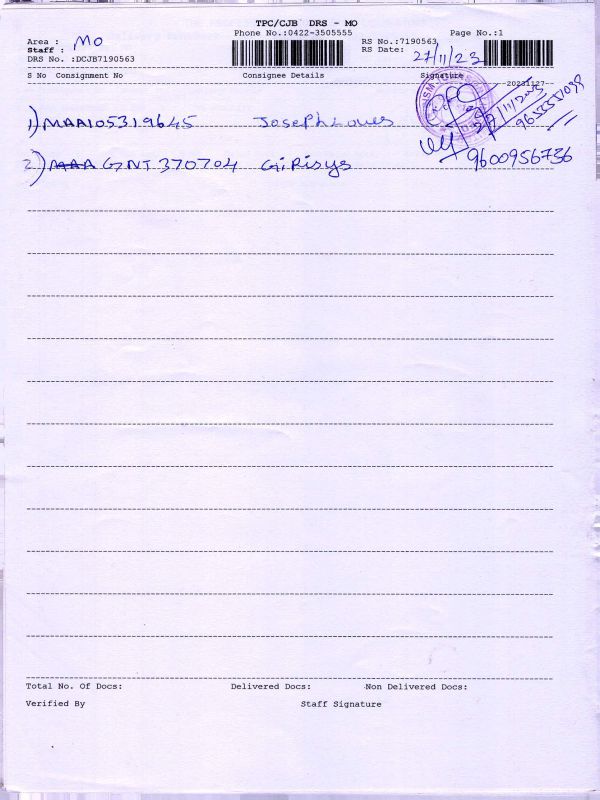 TPC/CJB DRS - MO
Phone No.:0422-3505555 Page No.:1
Area : MO
RS No.:7190563
Staff :
RS Date: 27/11/23
DRS No. :DCJB7190563
S No Consignment No Consignee Details Signature
20231127
1) MAA105319645 Joseph Loues
27/11/2023
9655551098
2) GNT370704 GiRisys
9600956736
Total No. Of Docs: Delivered Docs: Non Delivered Docs:
Verified By Staff Signature